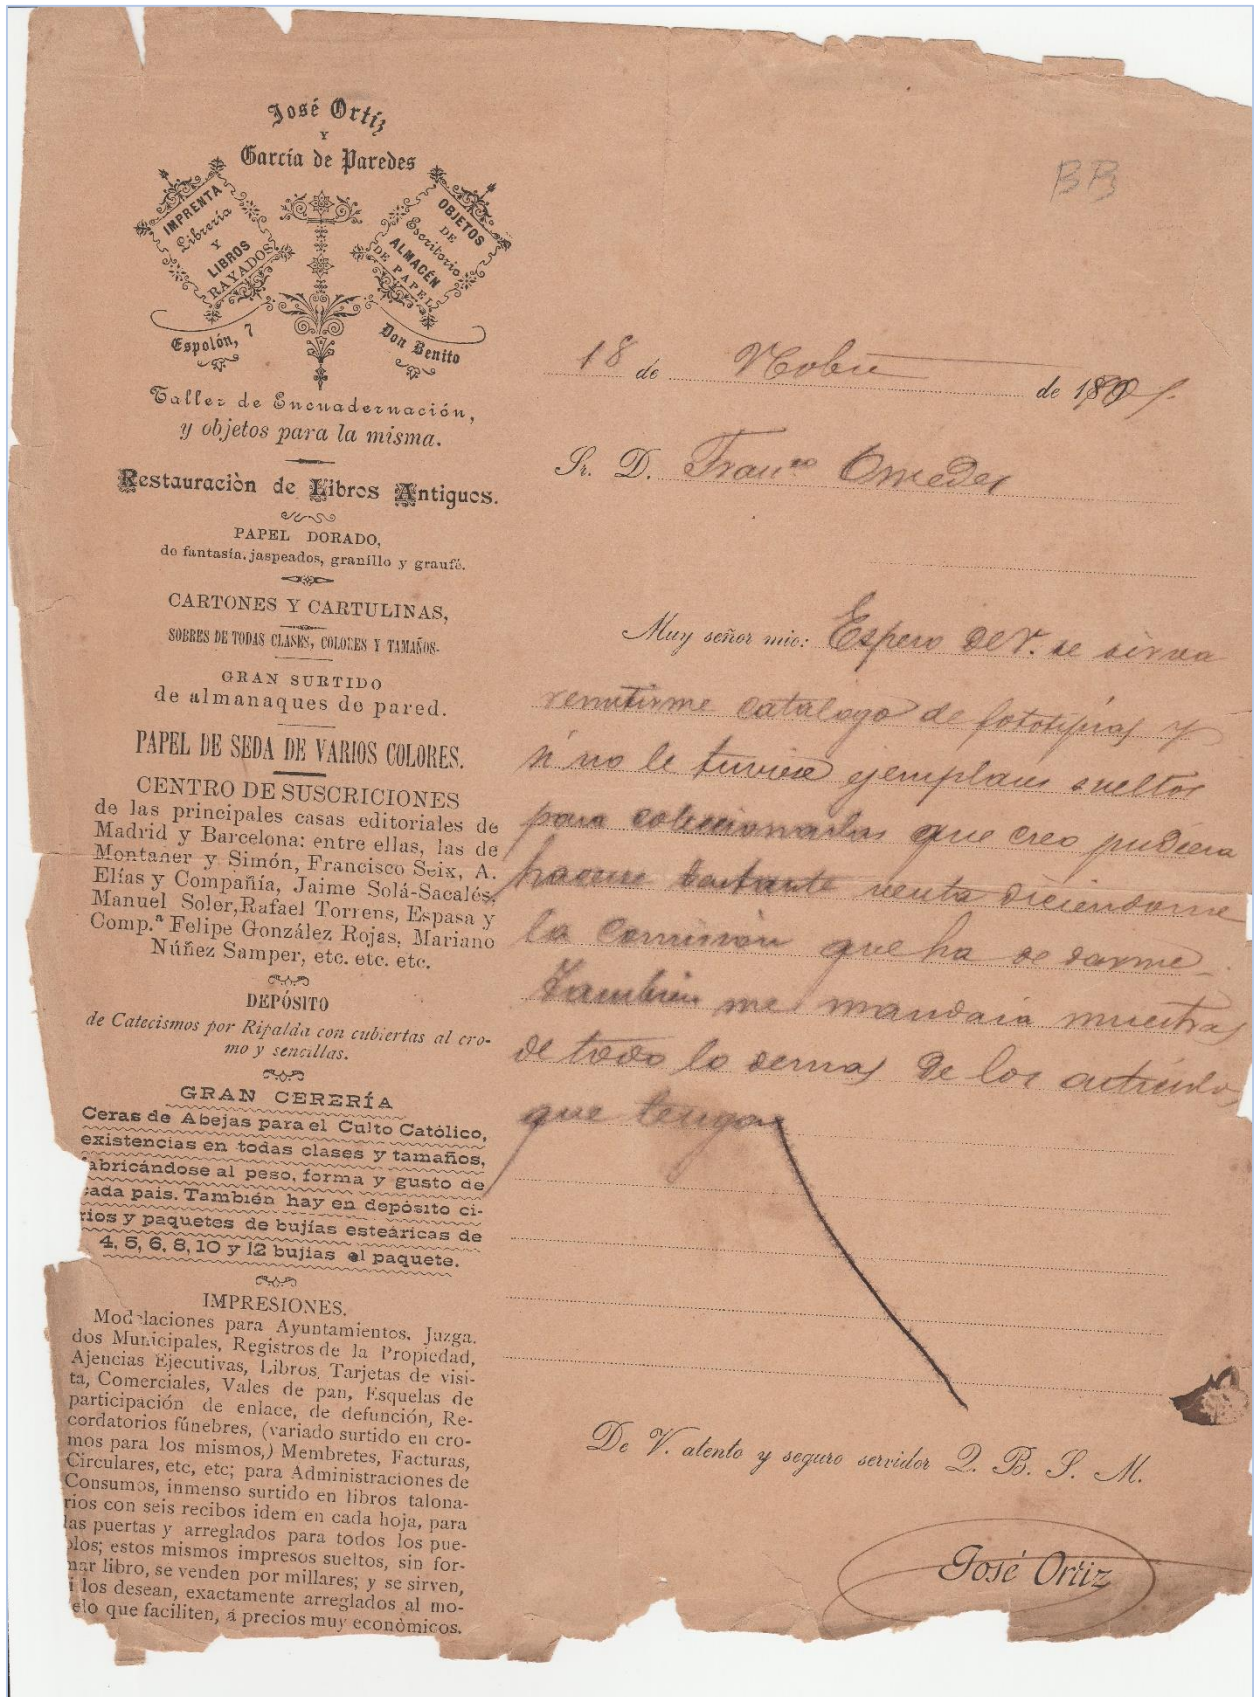 José Ortíz
Y
García de Paredes
IMPRENTA
Librería
Y
LIBROS
RAYADOS
OBJETOS
DE
Escritorio
ALMACÉN
DE PAPEL
Espolón, 7
Don Benito
Taller de Encuadernación,
y objetos para la misma.
Restauraciòn de Libros Antiguos.
PAPEL DORADO,
de fantasía, jaspeados, granillo y graufé.
CARTONES Y CARTULINAS,
SOBRES DE TODAS CLASES, COLORES Y TAMAÑOS.
GRAN SURTIDO
de almanaques de pared.
PAPEL DE SEDA DE VARIOS COLORES.
CENTRO DE SUSCRICIONES
de las principales casas editoriales de
Madrid y Barcelona: entre ellas, las de
Montaner y Simón, Francisco Seix, A.
Elías y Compañía, Jaime Solá-Sacalés,
Manuel Soler, Rafael Torrens, Espasa y
Comp.ª Felipe González Rojas, Mariano
Núñez Samper, etc. etc. etc.
DEPÓSITO
de Catecismos por Ripalda con cubiertas al cro-
mo y sencillas.
GRAN CERERÍA
Ceras de Abejas para el Culto Católico,
existencias en todas clases y tamaños,
fabricándose al peso, forma y gusto de
cada pais. También hay en depósito ci-
rios y paquetes de bujías esteáricas de
4, 5, 6, 8, 10 y 12 bujías el paquete.
IMPRESIONES.
Modelaciones para Ayuntamientos. Juzga.
dos Municipales, Registros de la Propiedad,
Ajencias Ejecutivas, Libros, Tarjetas de visi-
ta, Comerciales, Vales de pan, Esquelas de
participación de enlace, de defunción, Re-
cordatorios fúnebres, (variado surtido en cro-
mos para los mismos,) Membretes, Facturas,
Circulares, etc, etc; para Administraciones de
Consumos, inmenso surtido en libros talona-
rios con seis recibos idem en cada hoja, para
las puertas y arreglados para todos los pue-
blos; estos mismos impresos sueltos, sin for-
mar libro, se venden por millares; y se sirven,
i los desean, exactamente arreglados al mo-
elo que faciliten, á precios muy económicos.
BB
18 de Nobre de 190
Sr. D. Franco Omedes
Muy señor mio: Espero de V. se sirva
remitirme catalogo de fototipias y
si no le tuviese ejemplares sueltos
para coleccionarlas que creo pudiera
hacerse bastante venta diciendome
la comision que ha de darme.
Tambien me mandara muestras
de todo lo demas de los articulos
que tenga
De V. atento y seguro servidor Q. B. S. M.
José Ortiz